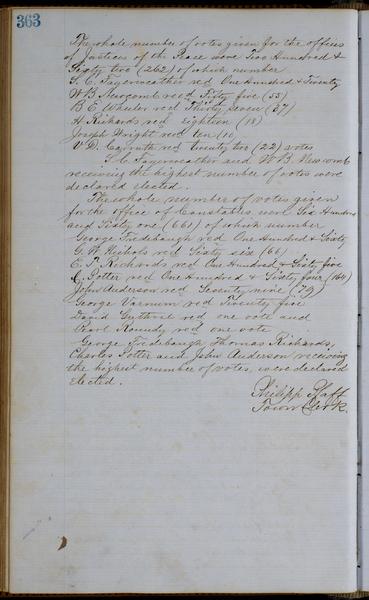 363
The whole number of votes given for the offices
of Justices of the Peace were Two Hundred &
Sixty two (262) of which number
S. C. Fayerweather recd One Hundred & Twenty
W B Newcomb recd Fifty five (55)
B E Wheeler recd Thirty seven (37)
H Richards recd eighteen (18)
Joseph Wright recd ten (10
V. D. recd twenty two (22) votes
S. C. Fayerweather and W B Newcomb
receiving the highest number of votes were
declared elected.
The whole number of votes given
for the office of Constables, were Six Hundred
and Sixty one (661) of which number
George Fredebaugh recd One Hundred & Sixty
G. W. Nichols recd Sixty six (66)
E. T. Richards recd One Hundred & Sixty five
C Potter recd One Hundred & Sixty four (164)
John Anderson recd Seventy nine (79)
George Varnum recd Twenty five
David Guthrie recd one vote and
Roundy recd one vote
George Fredebaugh Thomas Richards,
Charles Potter and John Anderson receiving
the highest number of votes, were declared
Elected.
Philipp Pfaff
Town Clerk.